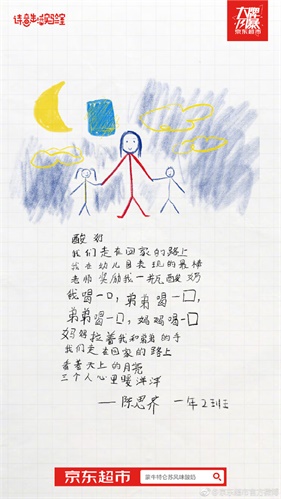 诗意生活嘉年华
大牌风暴
京东超市
酸奶
我们走在回家的路上
我在幼儿园表现的最棒
老师奖励我一瓶酸奶
我喝一口,弟弟喝一口,
弟弟喝一口,妈妈喝一口
妈妈拉着我和弟弟的手
我们走在回家的路上
看着天上的月亮
三个人心里暖洋洋
——陈思齐 一年2班
京东超市
蒙牛特仑苏风味酸奶
@京东超市官方微博